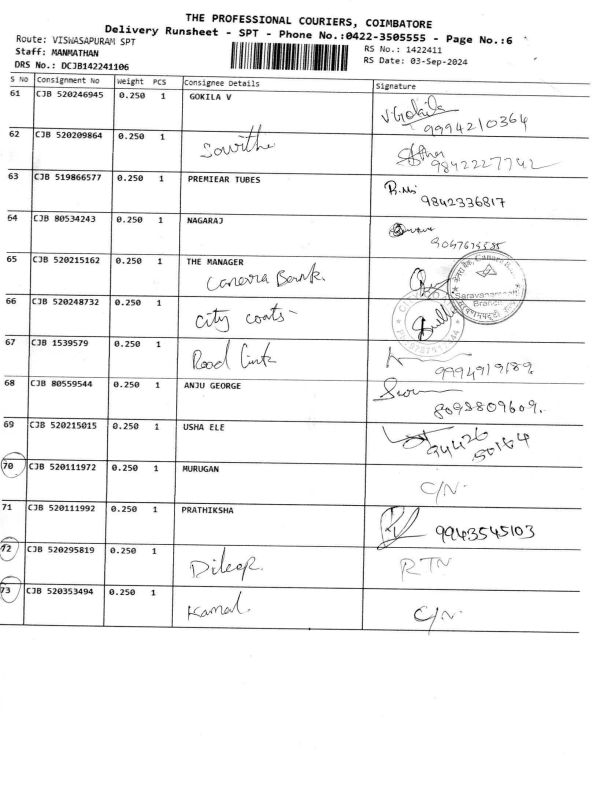 THE PROFESSIONAL COURIERS, COIMBATORE
Delivery Runsheet - SPT - Phone No.:0422-3505555 - Page No.:6
Route: VISWASAPURAM SPT
RS No.: 1422411
Staff: MANMATHAN
RS Date: 03-Sep-2024
DRS No.: DCJB142241106
S No Consignment No Weight PCS Consignee Details Signature
61 CJB 520246945 0.250 1 GOKILA V V.Gokila
9994210364
62 CJB 520209864 0.250 1
Sawitha
9842227742
63 CJB 519866577 0.250 1 PREMIEAR TUBES
9842336817
64 CJB 80534243 0.250 1 NAGARAJ
65 CJB 520215162 0.250 1 THE MANAGER
Canera Bank.
Saravanampatti
Branch
66 CJB 520248732 0.250 1
City coats -
67 CJB 1539579 0.250 1
Road Link
9994919189
68 CJB 80559544 0.250 1 ANJU GEORGE
8098809609.
69 CJB 520215015 0.250 1 USHA ELE
94426
50164
70 CJB 520111972 0.250 1 MURUGAN
C/N.
71 CJB 520111992 0.250 1 PRATHIKSHA
9943545103
72 CJB 520295819 0.250 1
Dileep. RTN
73 CJB 520353494 0.250 1
Kamal. C/N.